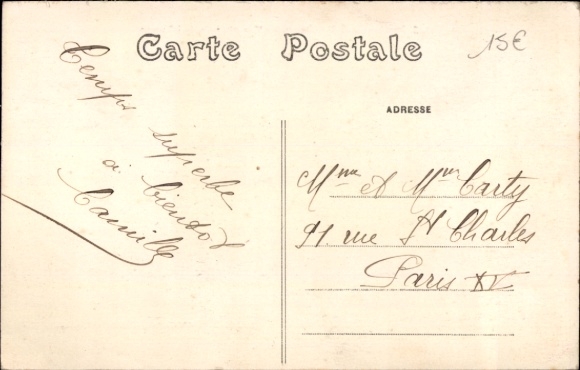 Carte Postale
15€
ADRESSE
Temps
superbe
à bientot
Camille
Mme et Mr Carty
91 rue St Charles
Paris XV